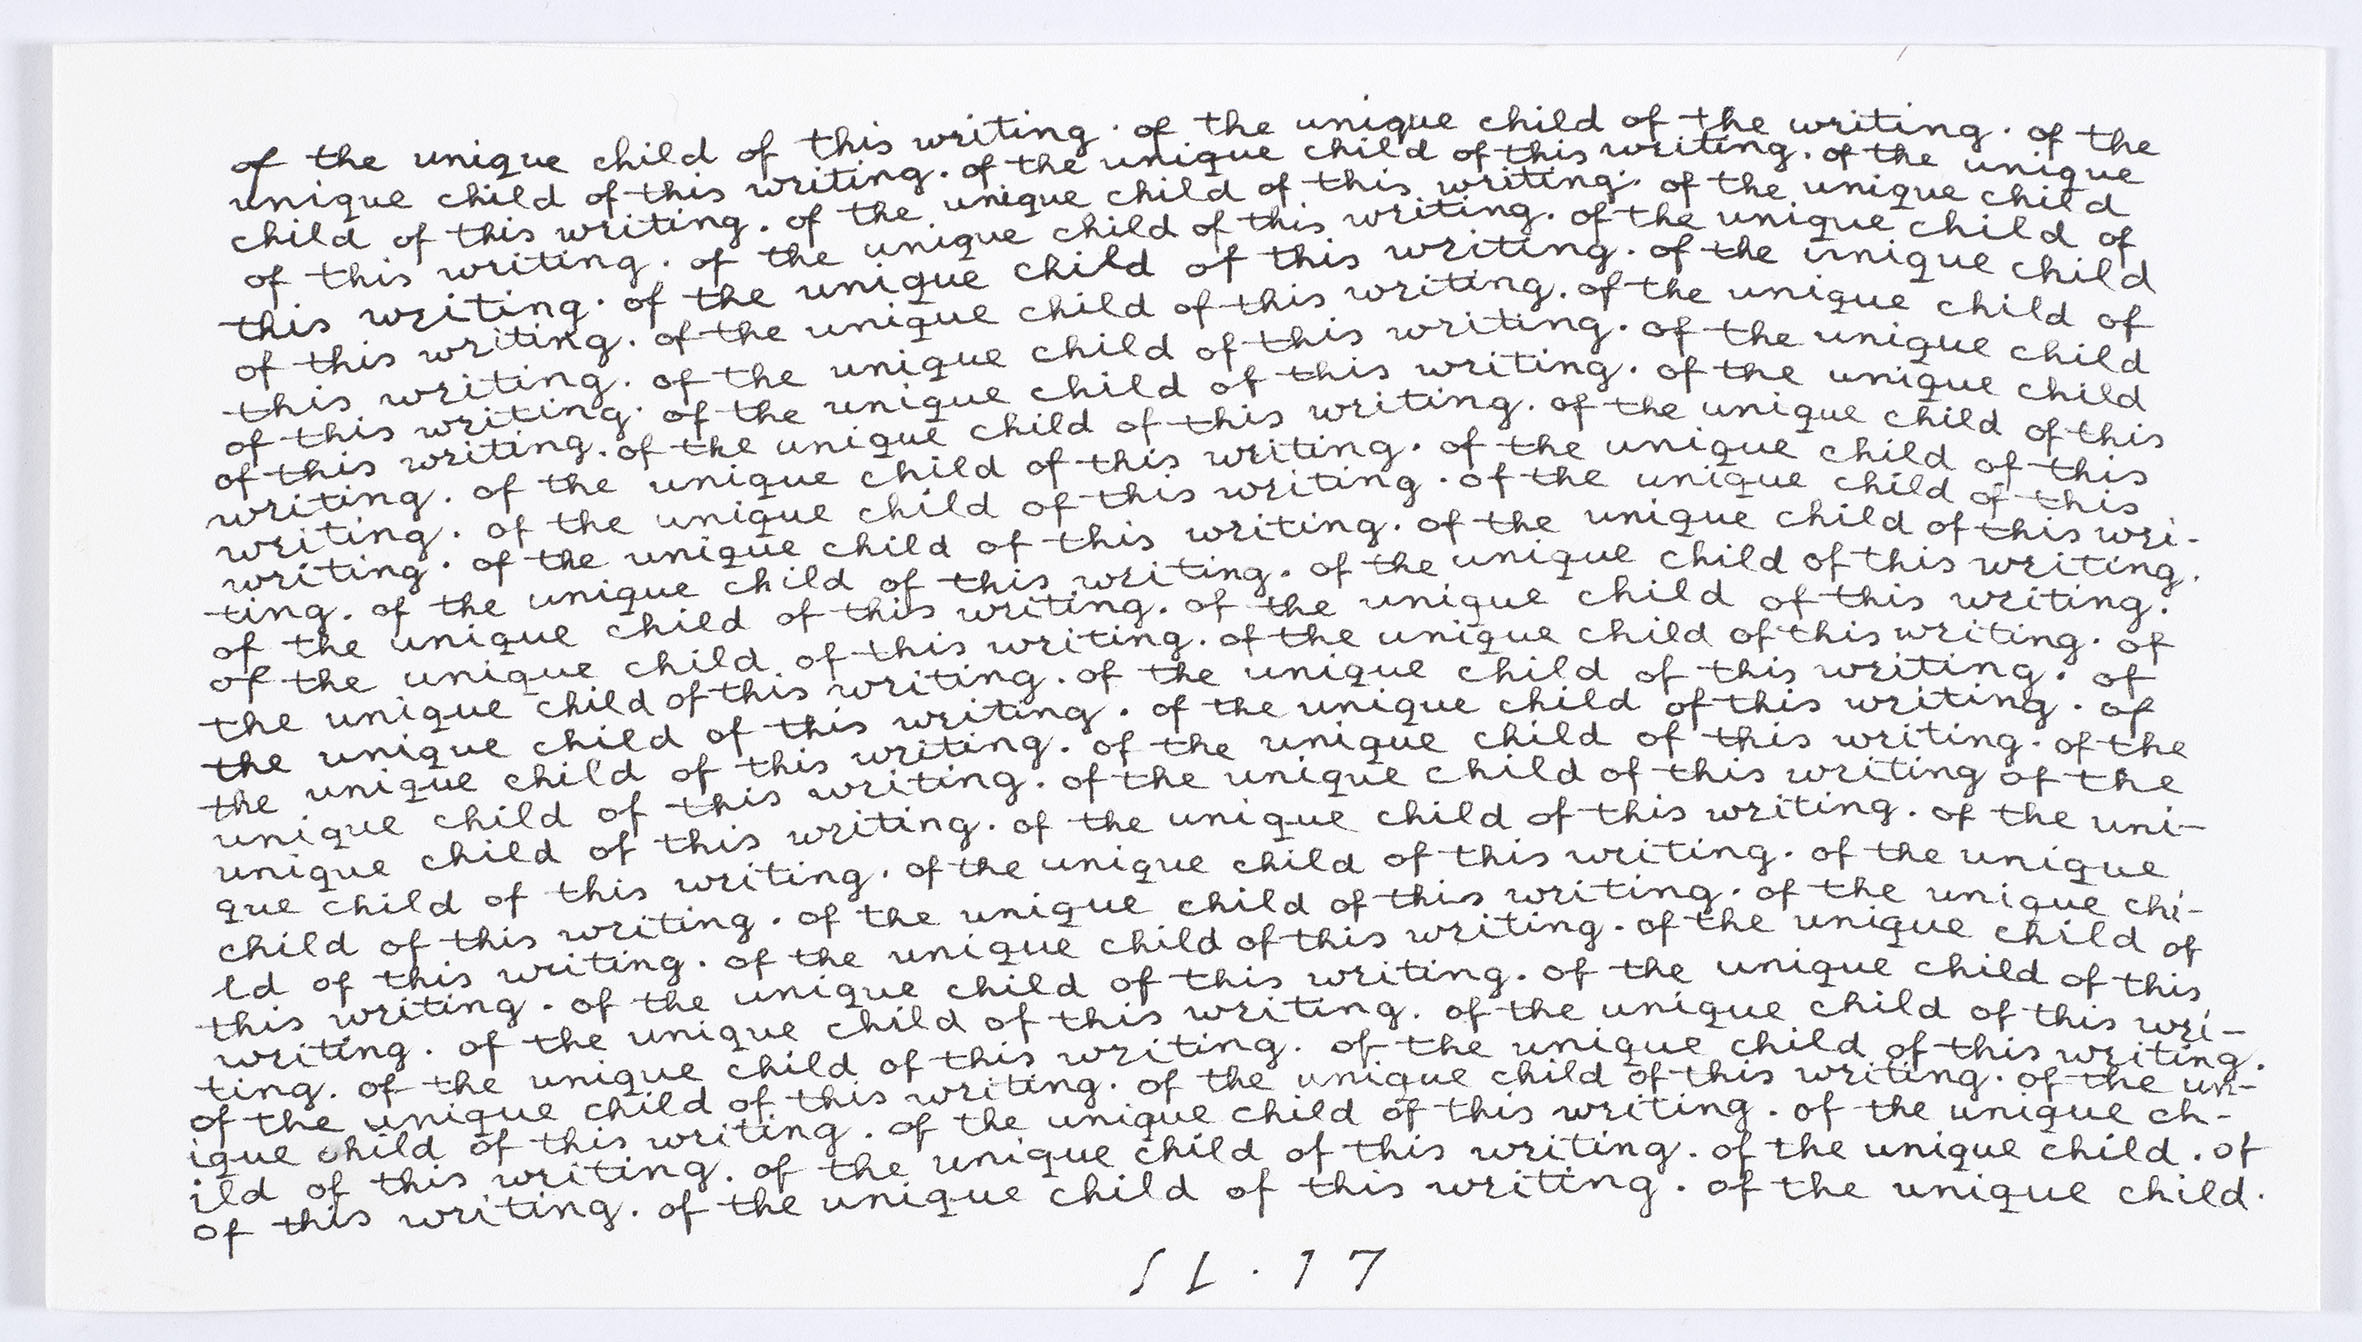 of the unique child of this writing. of the unique child of the writing. of the
unique child of this writing. of the unique child of this writing. of the unique
child of this writing. of the unique child of this writing. of the unique child
of this writing. of the unique child of this writing. of the unique child of
this writing. of the unique child of this writing. of the unique child
of this writing. of the unique child of this writing. of the unique child of
this writing. of the unique child of this writing. of the unique child
of this writing. of the unique child of this writing. of the unique child
of this writing. of the unique child of this writing. of the unique child of this
writing. of the unique child of this writing. of the unique child of this
writing. of the unique child of this writing. of the unique child of this
writing. of the unique child of this writing. of the unique child of this wri-
ting. of the unique child of this writing. of the unique child of this writing.
of the unique child of this writing. of the unique child of this writing.
of the unique child of this writing. of the unique child of this writing. of
the unique child of this writing. of the unique child of this writing. of
the unique child of this writing. of the unique child of this writing. of
the unique child of this writing. of the unique child of this writing. of the
unique child of this writing. of the unique child of this writing of the
unique child of this writing. of the unique child of this writing. of the uni-
que child of this writing. of the unique child of this writing. of the unique
child of this writing. of the unique child of this writing. of the unique chi-
ld of this writing. of the unique child of this writing. of the unique child of
this writing. of the unique child of this writing. of the unique child of this
writing. of the unique child of this writing. of the unique child of this wri-
ting. of the unique child of this writing. of the unique child of this writing.
of the unique child of this writing. of the unique child of this writing. of the un-
ique child of this writing. of the unique child of this writing. of the unique ch-
ild of this writing. of the unique child of this writing. of the unique child. of
of this writing. of the unique child of this writing. of the unique child.
SL.17